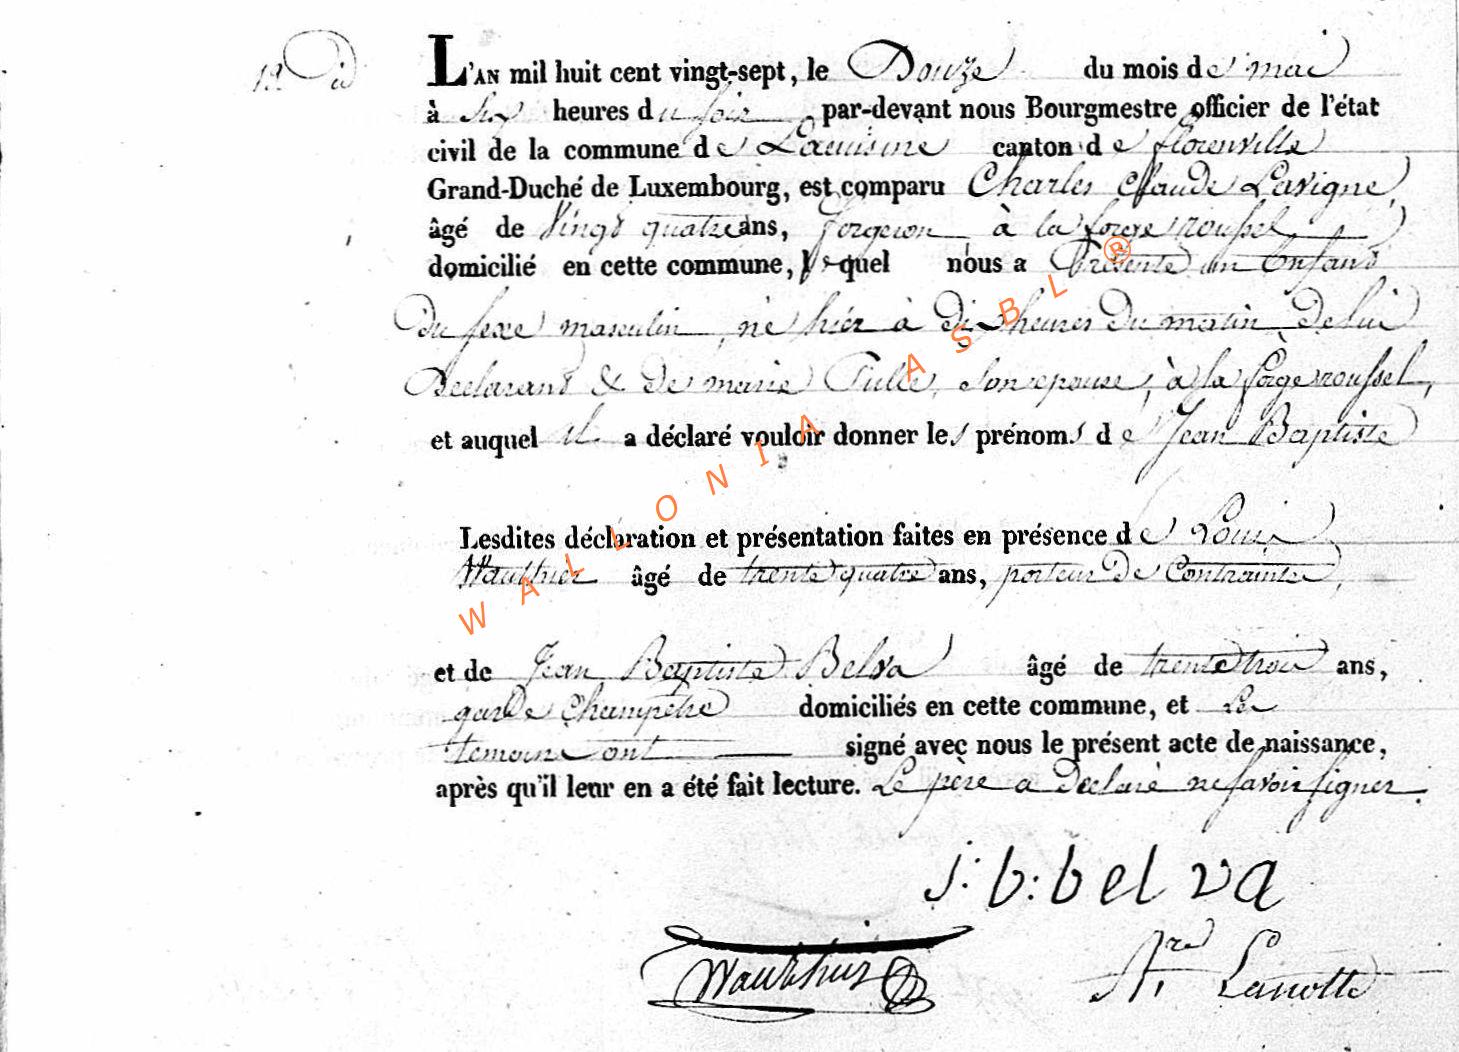 L'AN mil huit cent vingt-sept, le Douze du mois de mai
à Six heures du soir, par-devant nous Bourgmestre officier de l'état
civil de la commune de Lacuisine canton de florenville
Grand-Duché de Luxembourg, est comparu Charles Claude Lavigne,
âgé de Vingt quatre ans, forgeron à la forge roussel
domicilié en cette commune, lequel nous a Présenté un Enfant
Du sexe masculin, né hier à dix heures Du matin, De lui
Declarant & De marie Tulle, son epouse, à la forge roussel,
et auquel il a déclaré vouloir donner les prénoms de Jean Baptiste
Lesdites déclaration et présentation faites en présence de Louis
Wauthier âgé de trente quatre ans, porteur De Contrainte,
et de Jean Baptiste Belva âgé de trente trois ans,
garde Champêtre domiciliés en cette commune, et Les
temoins ont signé avec nous le présent acte de naissance,
après qu'il leur en a été fait lecture. Le père a Declaré ne savoir signer.
j: b: belva
Wauthier Lanotte
WALLONIA ASBL ®